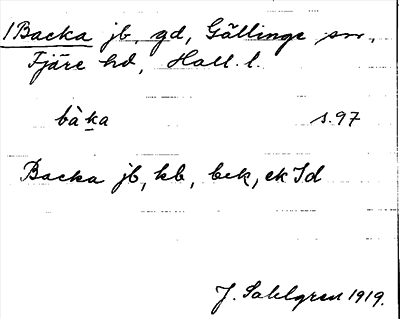 1 Backa jb, gd, Gällinge sn,
Fjäre hd, Hall. l.
bàka s. 97
Backa jb, kb, bek, ek Id
J. Sahlgren 1919.